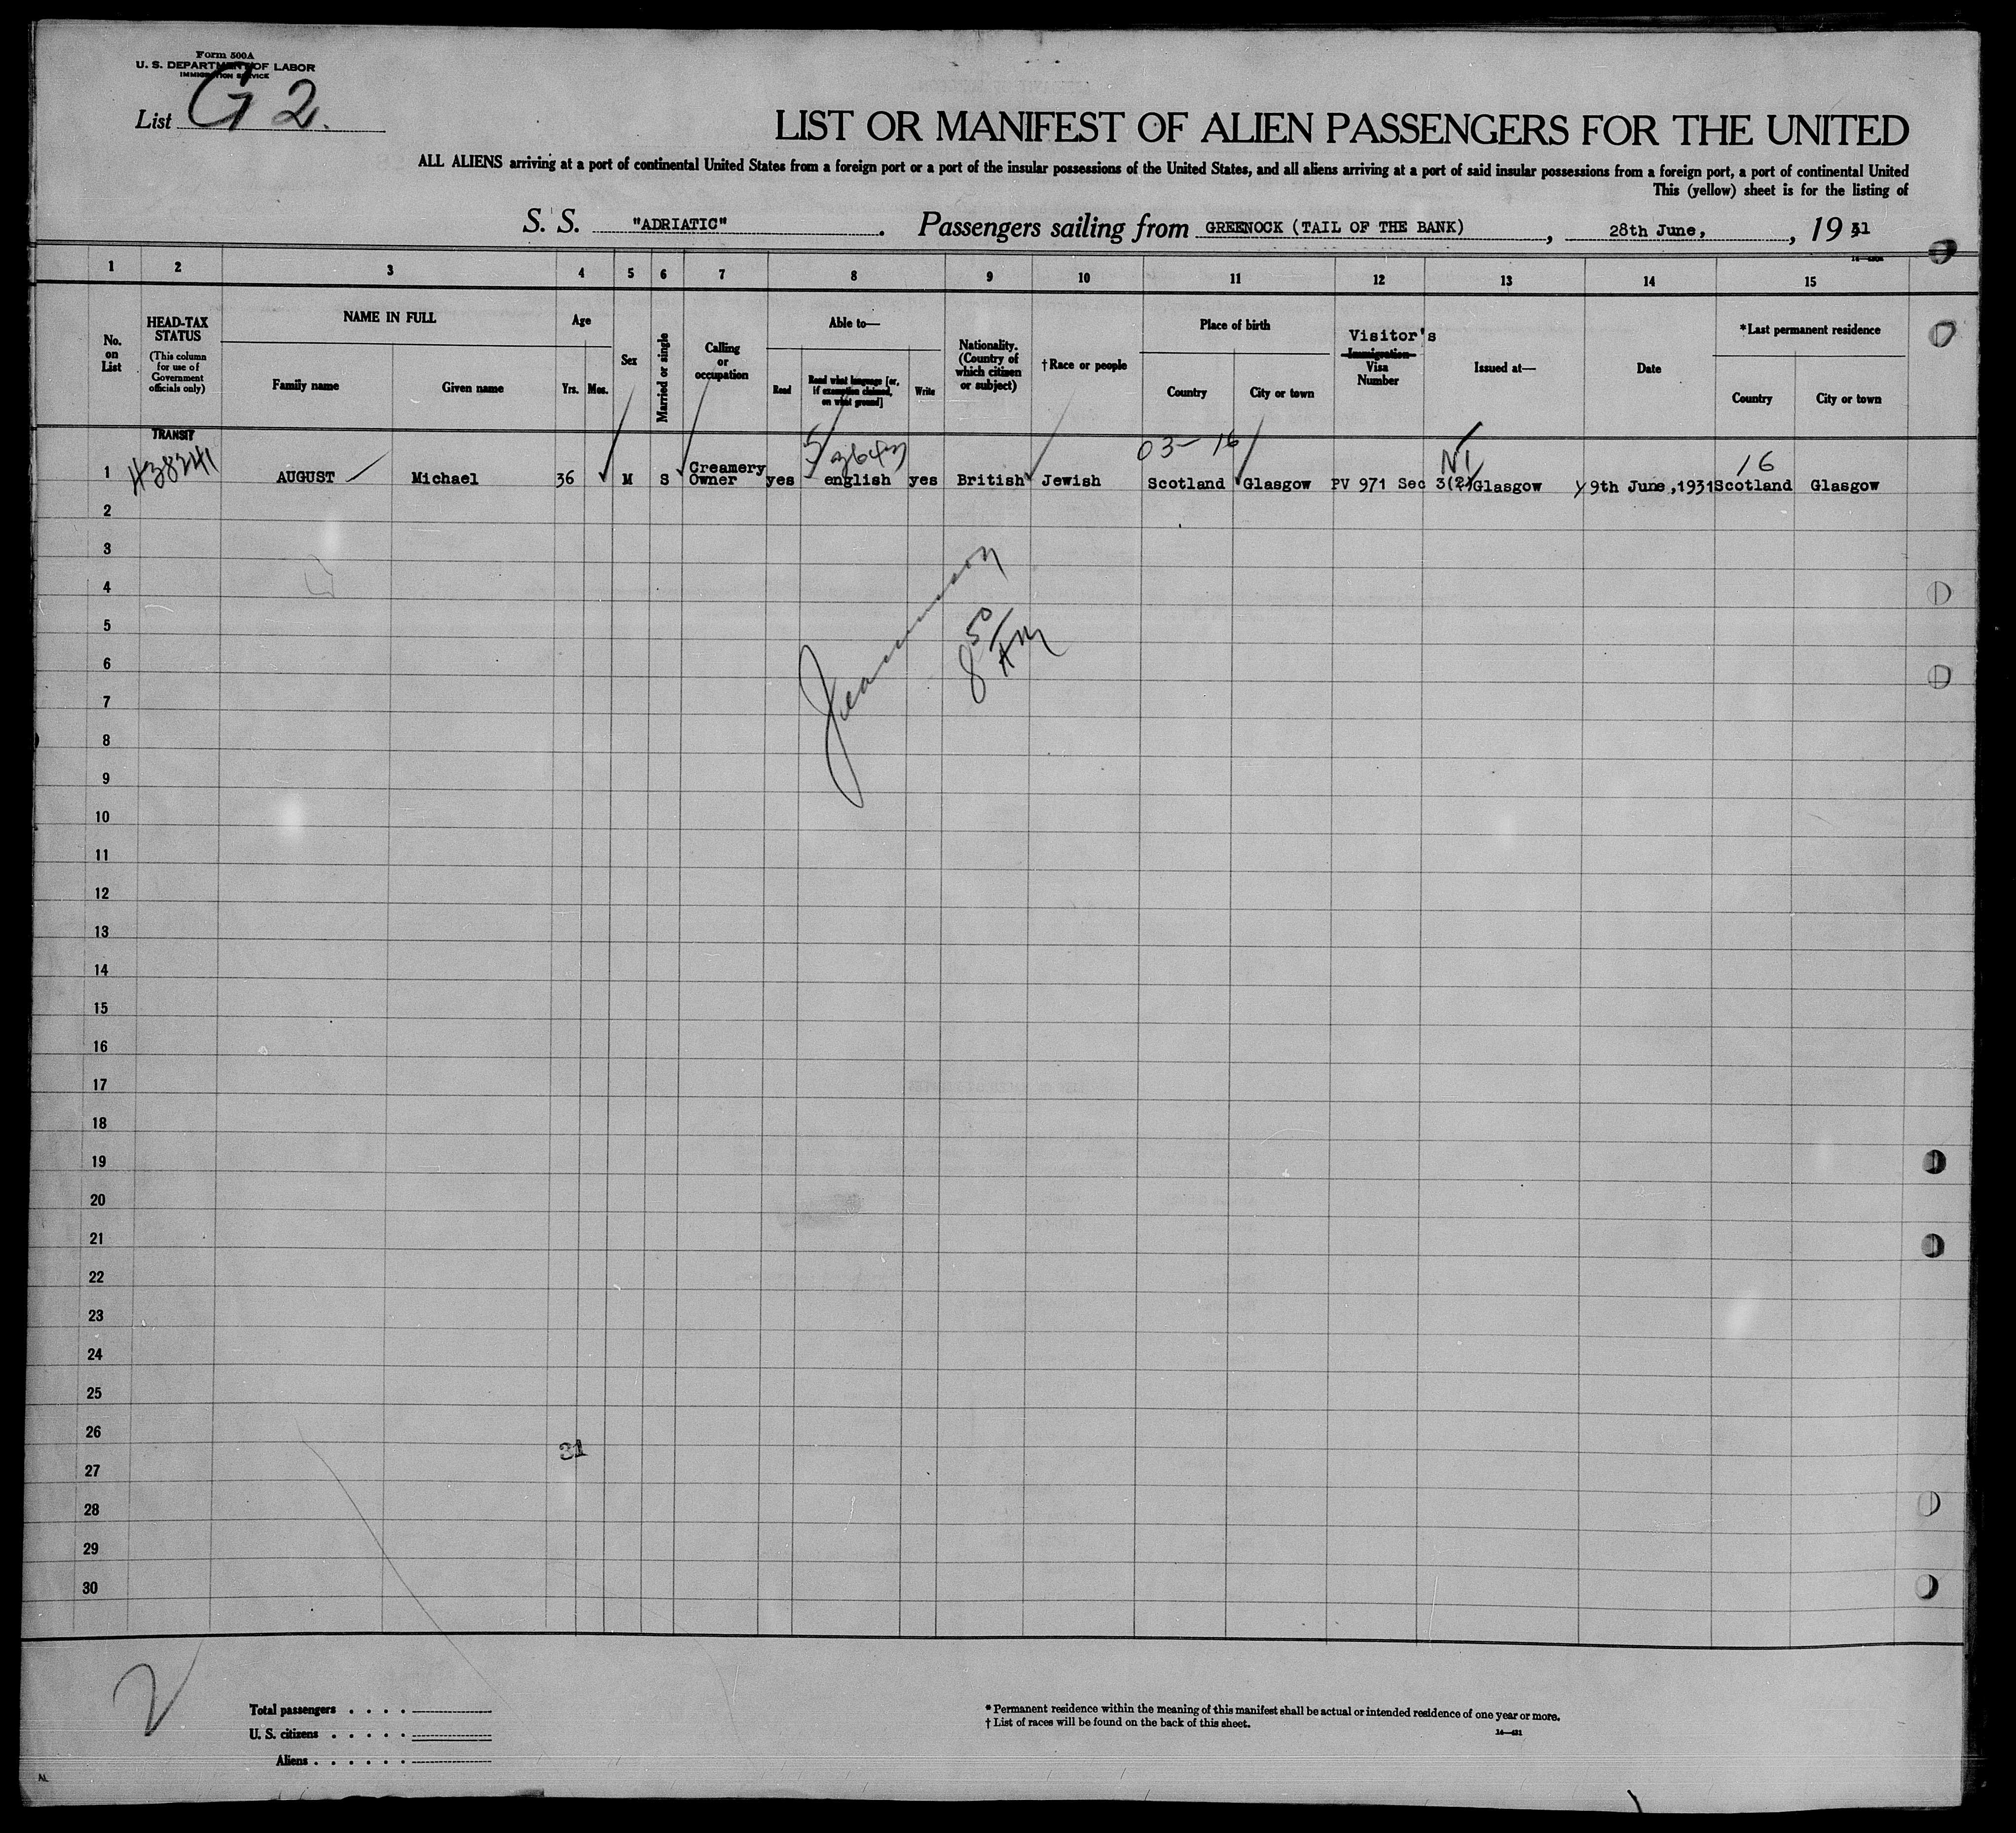 Form 500A
U. S. DEPARTMENT OF LABOR
IMMIGRATION SERVICE
List G 2.
LIST OR MANIFEST OF ALIEN PASSENGERS FOR THE UNITED
ALL ALIENS arriving at a port of continental United States from a foreign port or a port of the insular possessions of the United States, and all aliens arriving at a port of said insular possessions from a foreign port, a port of continental United
This (yellow) sheet is for the listing of
S. S. "ADRIATIC". Passengers sailing from GREENOCK (TAIL OF THE BANK), 28th June, , 1931
1 2 3 4 5 6 7 8 9 10 11 12 13 14 15
No. on List
HEAD-TAX STATUS
(This column for use of Government officials only)
NAME IN FULL
Family name
Given name
Age
Yrs. Mos.
Sex
Married or single
Calling or occupation
Able to—
Read
Read what language [or, if exemption claimed, on what ground]
Write
Nationality. (Country of which citizen or subject)
†Race or people
Place of birth
Country
City or town
Visitor's
Immigration
Visa Number
Issued at—
Date
*Last permanent residence
Country
City or town
TRANSIT
03- 16
N1
16
1 AUGUST Michael 36 M S Creamery Owner yes english yes British Jewish Scotland Glasgow PV 971 Sec 3(2) Glasgow 9th June,1931 Scotland Glasgow
2
3
4
5
6
7
8
9
10
11
12
13
14
15
16
17
18
19
20
21
22
23
24
25
26
27
28
29
30
8 50 AM
31
2
Total passengers . . . .
U. S. citizens . . . . .
Aliens . . . . . .
* Permanent residence within the meaning of this manifest shall be actual or intended residence of one year or more.
† List of races will be found on the back of this sheet.